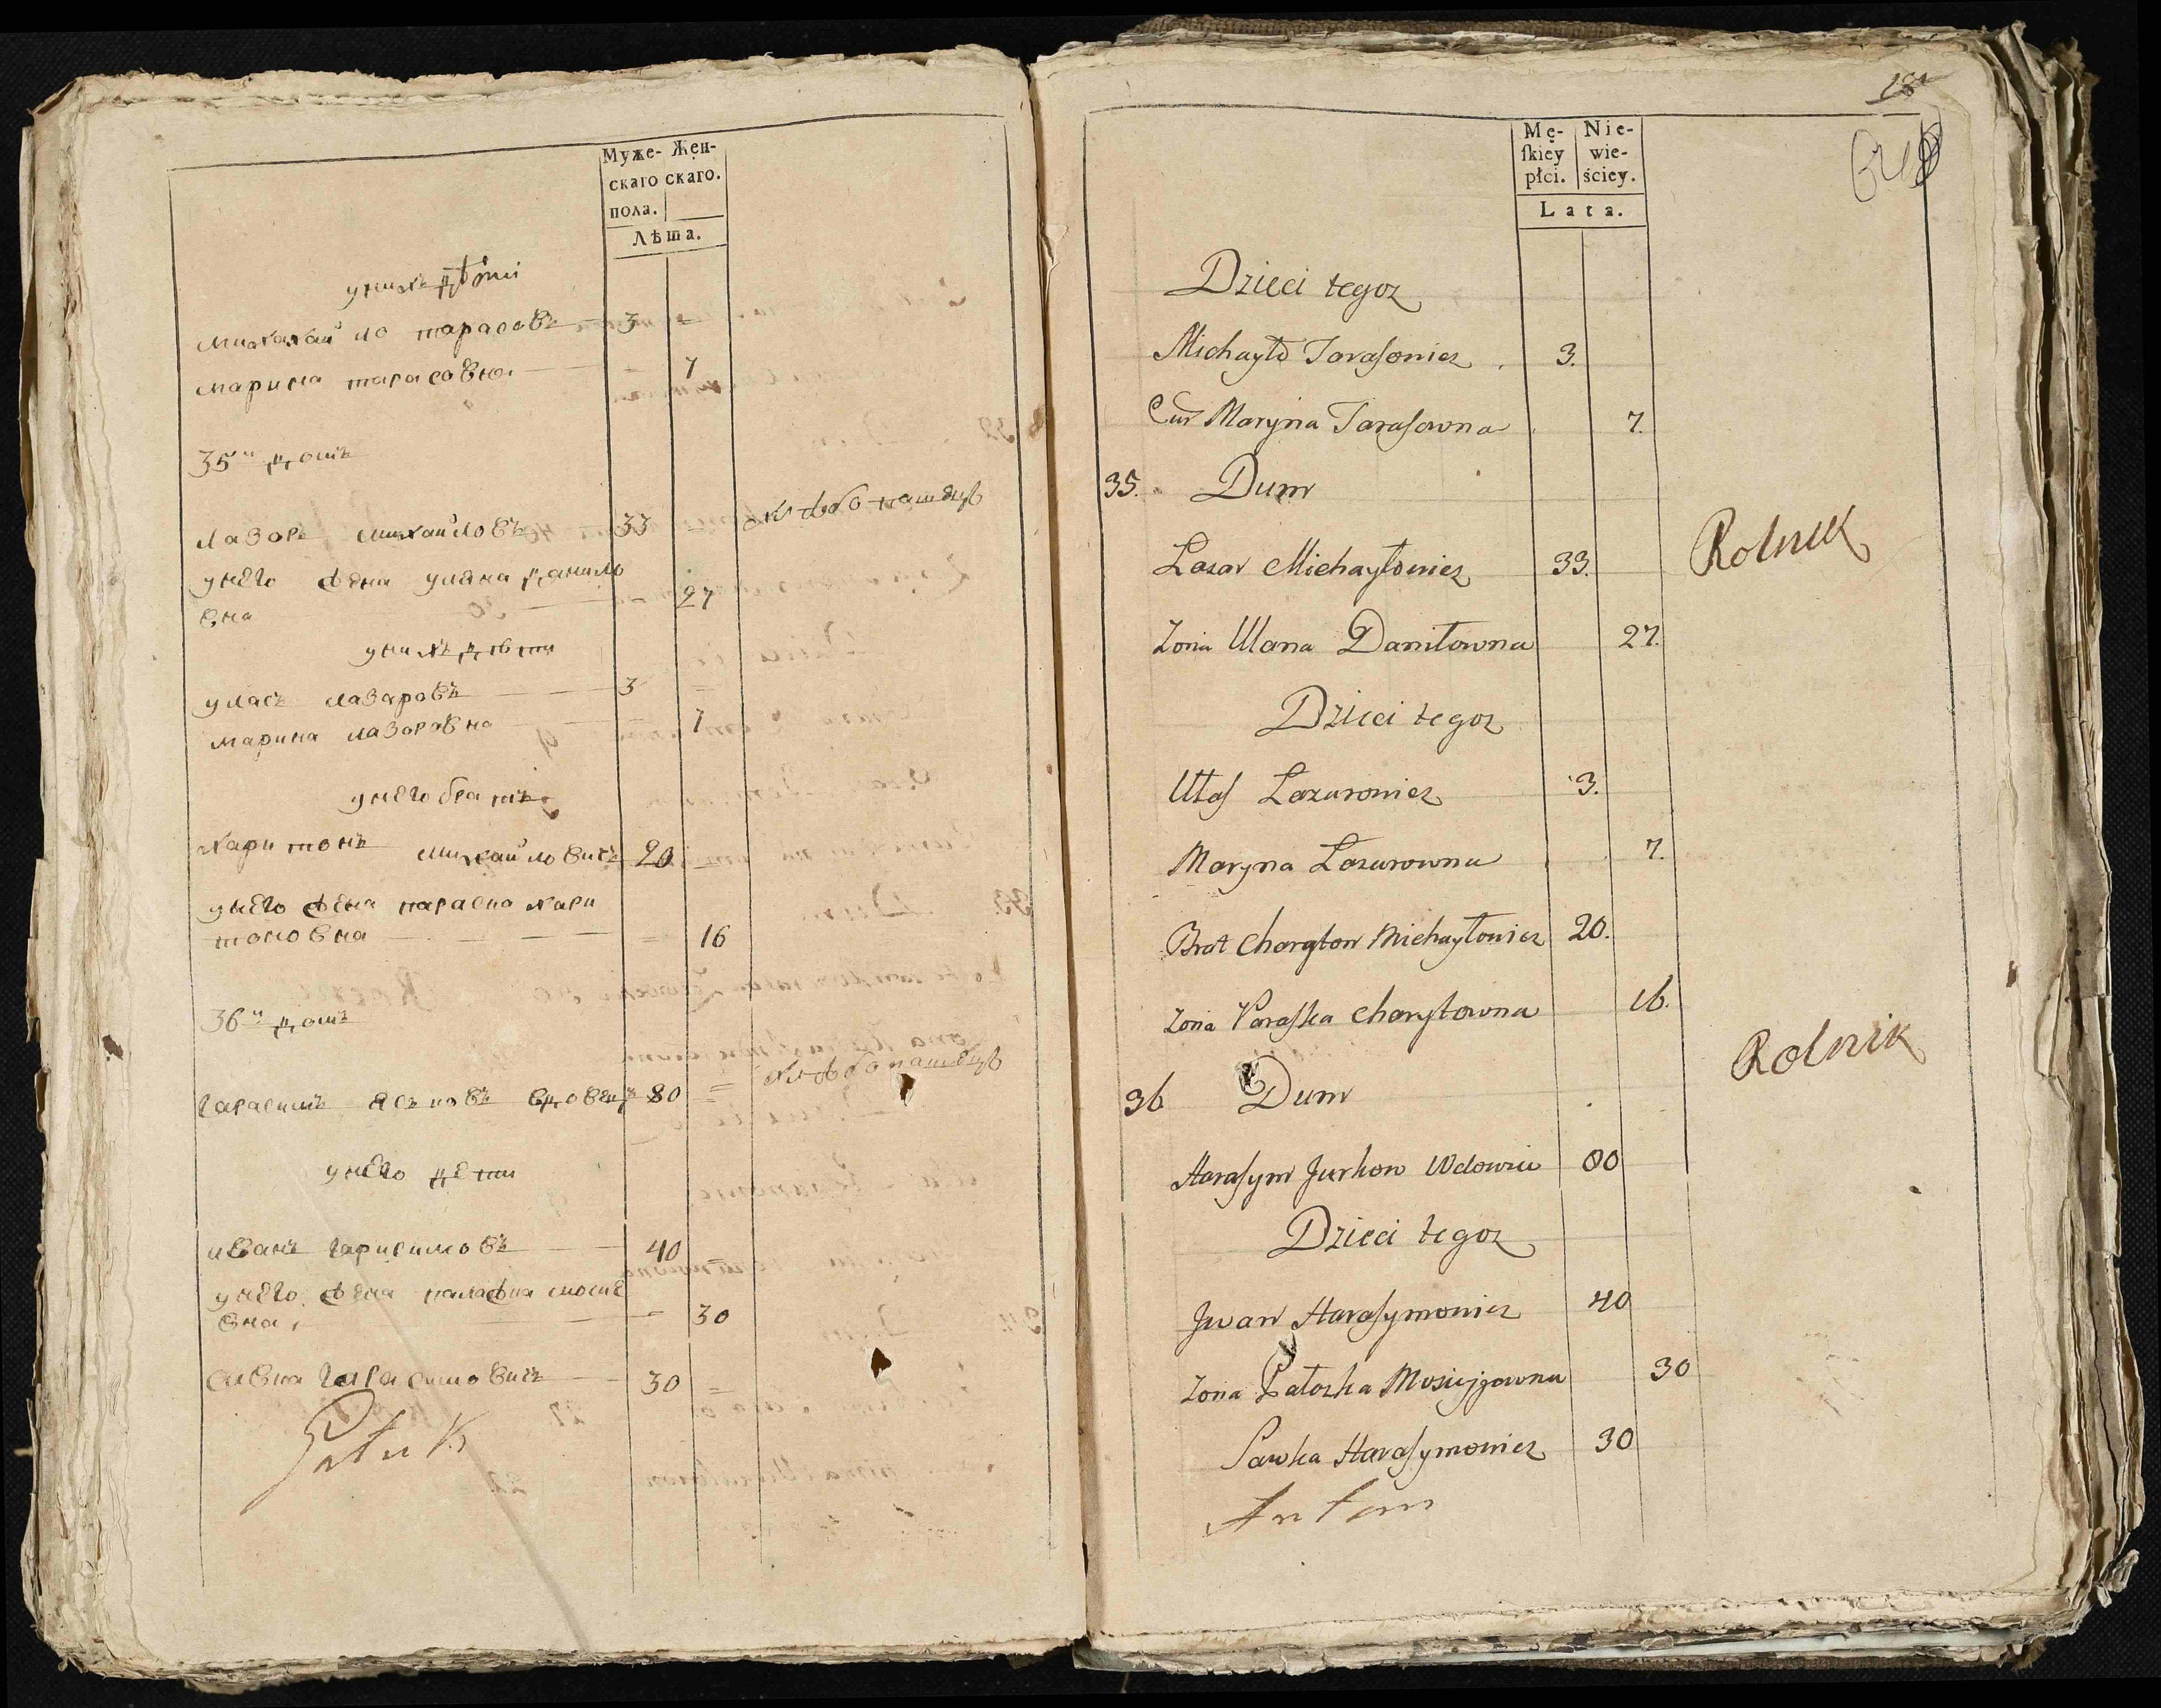 Муже- Жен-
скаго скаго.
пола.
Лѣта.
у нихъ дѣти
михайло тарасовъ 3 =
марина тарасовна - 7
35й домъ
лазоръ михайловъ 33 = хлѣбопашецъ
у нево жена уляна данило
вна 27
у нихъ дѣти
уласъ лазаровъ 3 =
марина лазоровна - 7
у нево братъ
харитонъ михайловичъ 20 =
у нево жена параска хари
тоновна = 16
36й домъ
гарасимъ вдовецъ 80 = хлѣбопашецъ
у нево дети
иванъ гарисимовъ 40 =
у нево жена палажка мосие
вна - 30
савка гарасимовичъ 30 =
Mę- Nie-
ſkiey wie-
płci. ściey.
Lata.
Dzieci tegoz
Michayło Taraſowicz 3.
Cur Maryna Taraſowna 7.
35. Dum
Lazar Michayłowicz 33. Rolnik
Zona Ulana Daniłowna 27.
Dzieci tegoz
Ułaſ Lazarowicz 3.
Maryna Lazarowna 7.
Brat Charyton Michayłowicz 20.
Zona Paraſka Charytowna 16.
36 Dum Rolnik
Haraſym Jurkow Wdowiec 80
Dzieci tegoz
Jwan Haraſymowicz 40
Zona Pałozka 30
Sawka Haraſymowicz 30